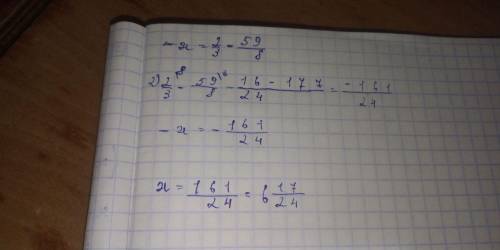 -x = 2/3 - 59/8
2) 2/3 \8 - 59/8 \3 - 16 - 177/24 = -161/24
-x = - 161/24
x = 161/24 = 6 17/24